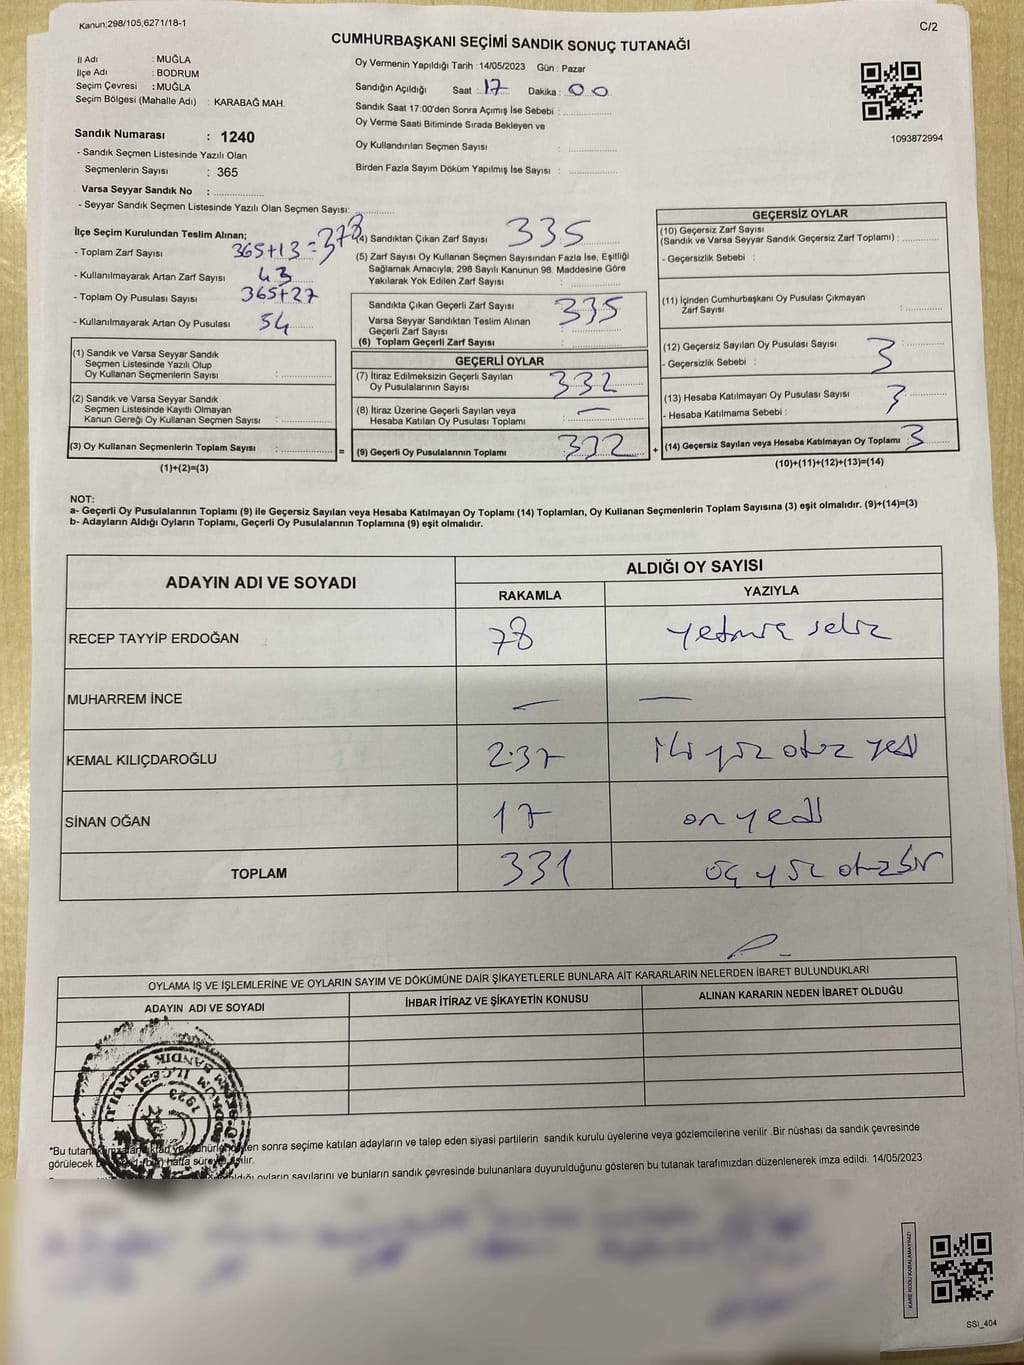 Kanun;298/105,6271/18-1
C/2
CUMHURBAŞKANI SEÇİMİ SANDIK SONUÇ TUTANAĞI
İl Adı : MUĞLA
İlçe Adı : BODRUM
Seçim Çevresi : MUĞLA
Seçim Bölgesi (Mahalle Adı) : KARABAĞ MAH.
Oy Vermenin Yapıldığı Tarih :14/05/2023 Gün : Pazar
Sandığın Açıldığı Saat : 17 Dakika : 00
Sandık Saat 17:00'den Sonra Açımış İse Sebebi :
Oy Verme Saati Bitiminde Sırada Bekleyen ve
Oy Kullandırılan Seçmen Sayısı :
Birden Fazla Sayım Döküm Yapılmış İse Sayısı :
1093872994
Sandık Numarası : 1240
- Sandık Seçmen Listesinde Yazılı Olan
Seçmenlerin Sayısı : 365
Varsa Seyyar Sandık No :
- Seyyar Sandık Seçmen Listesinde Yazılı Olan Seçmen Sayısı:
İlçe Seçim Kurulundan Teslim Alınan;
- Toplam Zarf Sayısı 365+13=378
- Kullanılmayarak Artan Zarf Sayısı 43
- Toplam Oy Pusulası Sayısı 365+27
- Kullanılmayarak Artan Oy Pusulası 54
(1) Sandık ve Varsa Seyyar Sandık
Seçmen Listesinde Yazılı Olup
Oy Kullanan Seçmenlerin Sayısı :
(2) Sandık ve Varsa Seyyar Sandık
Seçmen Listesinde Kayıtlı Olmayan
Kanun Gereği Oy Kullanan Seçmen Sayısı :
(3) Oy Kullanan Seçmenlerin Toplam Sayısı :
(1)+(2)=(3)
=
(4) Sandıktan Çıkan Zarf Sayısı 335
(5) Zarf Sayısı Oy Kullanan Seçmen Sayısından Fazla İse, Eşitliği
Sağlamak Amacıyla, 298 Sayılı Kanunun 98. Maddesine Göre
Yakılarak Yok Edilen Zarf Sayısı :
Sandıkta Çıkan Geçerli Zarf Sayısı 335
Varsa Seyyar Sandıktan Teslim Alınan
Geçerli Zarf Sayısı
(6) Toplam Geçerli Zarf Sayısı :
GEÇERLİ OYLAR
(7) İtiraz Edilmeksizin Geçerli Sayılan
Oy Pusulalarının Sayısı 332
(8) İtiraz Üzerine Geçerli Sayılan veya
Hesaba Katılan Oy Pusulası Toplamı : —
(9) Geçerli Oy Pusulalarının Toplamı 332
+
GEÇERSİZ OYLAR
(10) Geçersiz Zarf Sayısı
(Sandık ve Varsa Seyyar Sandık Geçersiz Zarf Toplamı) :
- Geçersizlik Sebebi :
(11) İçinden Cumhurbaşkanı Oy Pusulası Çıkmayan
Zarf Sayısı :
(12) Geçersiz Sayılan Oy Pusulası Sayısı : 3
- Geçersizlik Sebebi :
(13) Hesaba Katılmayan Oy Pusulası Sayısı : 3
- Hesaba Katılmama Sebebi :
(14) Geçersiz Sayılan veya Hesaba Katılmayan Oy Toplamı : 3
(10)+(11)+(12)+(13)=(14)
NOT:
a- Geçerli Oy Pusulalarının Toplamı (9) ile Geçersiz Sayılan veya Hesaba Katılmayan Oy Toplamı (14) Toplamları, Oy Kullanan Seçmenlerin Toplam Sayısına (3) eşit olmalıdır. (9)+(14)=(3)
b- Adayların Aldığı Oyların Toplamı, Geçerli Oy Pusulalarının Toplamına (9) eşit olmalıdır.
ADAYIN ADI VE SOYADI
ALDIĞI OY SAYISI
RAKAMLA YAZIYLA
RECEP TAYYİP ERDOĞAN 78 yetmiş sekiz
MUHARREM İNCE — —
KEMAL KILIÇDAROĞLU 237 iki yüz otuz yedi
SİNAN OĞAN 17 on yedi
TOPLAM 331 üç yüz otuz bir
OYLAMA İŞ VE İŞLEMLERİNE VE OYLARIN SAYIM VE DÖKÜMÜNE DAİR ŞİKAYETLERLE BUNLARA AİT KARARLARIN NELERDEN İBARET BULUNDUKLARI
ADAYIN ADI VE SOYADI İHBAR İTİRAZ VE ŞİKAYETİN KONUSU ALINAN KARARIN NEDEN İBARET OLDUĞU
1923
*Bu tutanak sonra seçime katılan adayların ve talep eden siyasi partilerin sandık kurulu üyelerine veya gözlemcilerine verilir .Bir nüshası da sandık çevresinde
görülecek bir hafta süreyle asılır.
oyların sayılarını ve bunların sandık çevresinde bulunanlara duyurulduğunu gösteren bu tutanak tarafımızdan düzenlenerek imza edildi. 14/05/2023
KARE KODU KARALAMAYINIZ!
SSI_404